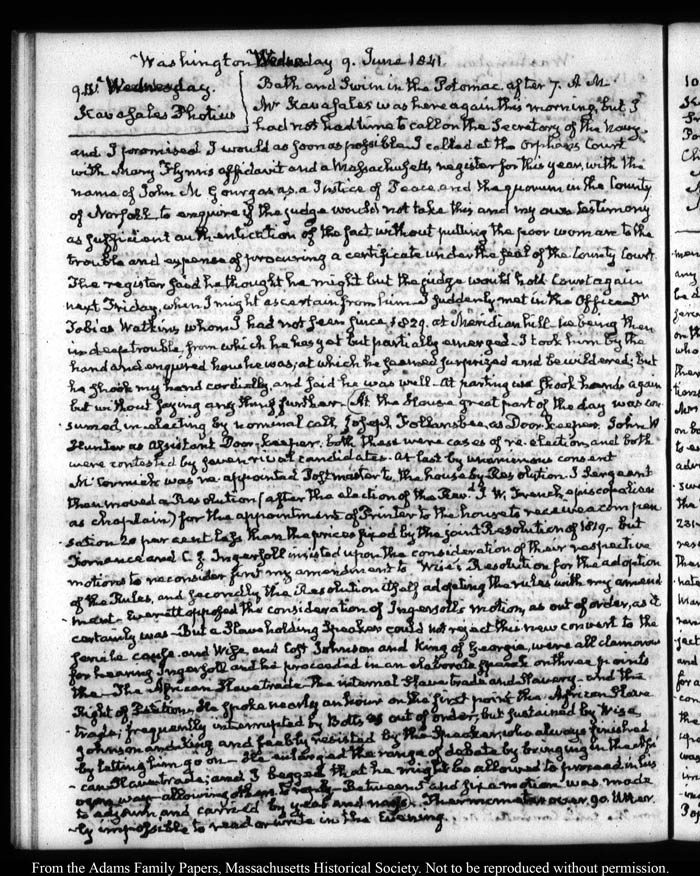 Washington Wednesday 9. June 1841.
9. IV. Wednesday.
Kavasales Photius
Bath and swim in the Potomac after 7. A.M.
Mr Kavasales was here again this morning but I
had not had time to call on the Secretary of the Navy
and I promised I would as soon as possible. I called at the Orphans Court
with Mary Flynn's affidavit and a Massachusetts register for this year, with the
name of John M Gourgas as a Justice of Peace and the quorum in the County
of Norfolk to enquire if the judge would not take this and my own testimony
as sufficient authentication of the fact without putting the poor woman to the
trouble and expense of procuring a certificate under the seal of the County Court
The register said he thought he might but the judge would hold Court again
next Friday, when I might ascertain from him. I suddenly met in the Office Dr
Tobias Watkins whom I had not seen since 1829. at Meridian hill—he being then
in deep trouble, from which he has yet but partially emerged—I took him by the
hand and enquired how he was; at which he seemed surprized and bewildered; but
he shook my hand cordially, and said he was well—At parting we shook hands again
but without saying any thing further—At the House great part of the day was con
sumed in electing by nominal call, Joseph Follansbee, as Door keeper. John W
Hunter as assistant Door-keeper. both these were cases of re-election, and both
were contested by several rival candidates. At last by unanimous consent
McCormick was re-appointed Postmaster to the house by Resolution. J. Sergeant
then moved a Resolution (after the election of the Revd. J. W. French, episcopalian
as chaplain) for the appointment of Printer to the house to receive a compen
sation 20 per cent less than the prices fixed by the joint Resolution of 1819—But
Fornance and C. J. Ingersoll insisted upon the consideration of their respective
motions to reconsider first my amendment to Wise's Resolution for the adoption
of the Rules, and secondly the Resolution itself adopting the rules with my amend
ment—Everett opposed the consideration of Ingersoll's motion, as out of order, as it
certainly was—But a Slave holding Speaker could not reject this new convert to the
servile cause and Wise, and Cost Johnson and King of Georgia, were all clamorous
for hearing Ingersoll and he proceeded in an elaborate speech on three points
the—The African Slave trade—the internal Slave trade and Slavery—and the
Right of Petition. He spoke nearly an hour on the first point the African Slave
trade; frequently interrupted by Botts as out of order, but sustained by Wise,
Johnson and King and feebly resisted by the Speaker, who always finished
by letting him go on—He enlarged the range of debate by bringing in the Afri
can Slave trade; and I begged that he might be allowed to proceed in his
own way—allowing others to reply. Between 5 and six a motion was made
to adjourn and carried by yeas and nays. Thermometer over 90. Utter
ly impossible to read or write in the Evening.
From the Adams Family Papers, Massachusetts Historical Society. Not to be reproduced without permission.